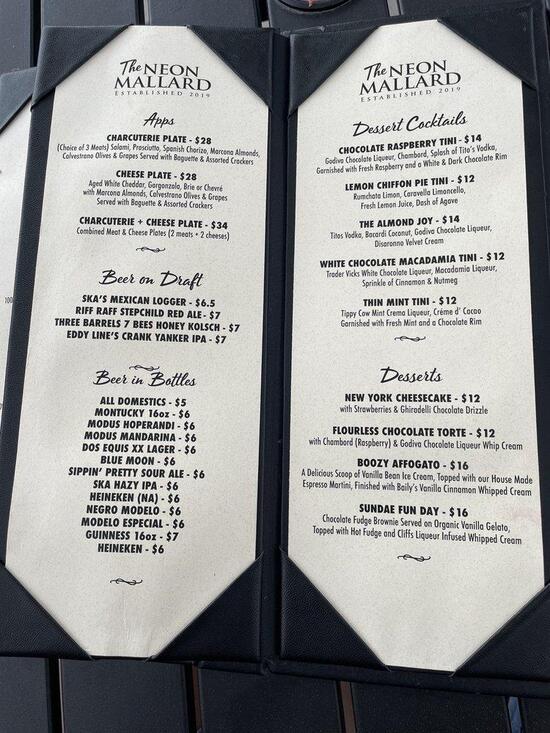 The NEON
MALLARD
ESTABLISHED 2019
Apps
CHARCUTERIE PLATE - $28
(Choice of 3 Meats) Salami, Prosciutto, Spanish Chorizo, Marcona Almonds,
Calvestrano Olives & Grapes Served with Baguette & Assorted Crackers
CHEESE PLATE - $28
Aged White Cheddar, Gorgonzola, Brie or Chevré
with Marcona Almonds, Calvestrano Olives & Grapes
Served with Baguette & Assorted Crackers
CHARCUTERIE + CHEESE PLATE - $34
Combined Meat & Cheese Plates (2 meats • 2 cheeses)
Beer on Draft
SKA'S MEXICAN LOGGER - $6.5
RIFF RAFF STEPCHILD RED ALE - $7
THREE BARRELS 7 BEES HONEY KOLSCH - $7
EDDY LINE'S CRANK YANKER IPA - $7
Beer in Bottles
ALL DOMESTICS - $5
MONTUCKY 16oz - $6
MODUS HOPERANDI - $6
MODUS MANDARINA - $6
DOS EQUIS XX LAGER - $6
BLUE MOON - $6
SIPPIN' PRETTY SOUR ALE - $6
SKA HAZY IPA - $6
HEINEKEN (NA) - $6
NEGRO MODELO - $6
MODELO ESPECIAL - $6
GUINNESS 16oz - $7
HEINEKEN - $6
The NEON
MALLARD
ESTABLISHED 2019
Dessert Cocktails
CHOCOLATE RASPBERRY TINI - $14
Godiva Chocolate Liqueur, Chambord, Splash of Tito's Vodka,
Garnished with Fresh Raspberry and a White & Dark Chocolate Rim
LEMON CHIFFON PIE TINI - $12
Rumchata Limon, Caravella Limoncello,
Fresh Lemon Juice, Dash of Agave
THE ALMOND JOY - $14
Titos Vodka, Bacardi Coconut, Godiva Chocolate Liqueur,
Disaronno Velvet Cream
WHITE CHOCOLATE MACADAMIA TINI - $12
Trader Vicks White Chocolate Liqueur, Macadamia Liqueur,
Sprinkle of Cinnamon & Nutmeg
THIN MINT TINI - $12
Tippy Cow Mint Crema Liqueur, Créme d' Cacao
Garnished with Fresh Mint and a Chocolate Rim
Desserts
NEW YORK CHEESECAKE - $12
with Strawberries & Ghiradelli Chocolate Drizzle
FLOURLESS CHOCOLATE TORTE - $12
with Chambord (Raspberry) & Godiva Chocolate Liqueur Whip Cream
BOOZY AFFOGATO - $16
A Delicious Scoop of Vanilla Bean Ice Cream, Topped with our House Made
Espresso Martini, Finished with Baily's Vanilla Cinnamon Whipped Cream
SUNDAE FUN DAY - $16
Chocolate Fudge Brownie Served on Organic Vanilla Gelato,
Topped with Hot Fudge and Cliffs Liqueur Infused Whipped Cream